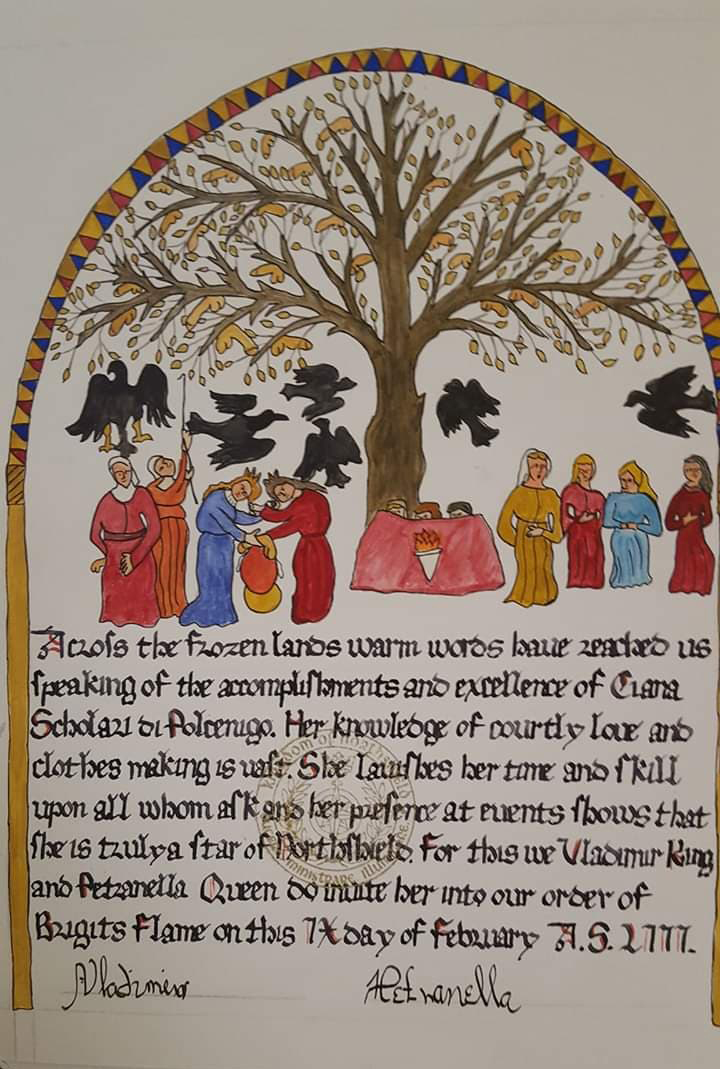 Across the frozen lands warm words have reached us
speaking of the accomplishments and excellence of Ciara
Scholari di Polcenigo. Her knowledge of courtly love and
clothes making is vast. She lavishes her time and skill
upon all whom ask and her presence at events shows that
she is truly a star of Northshield. For this we Vladimir King
and Petranella Queen do invite her into our order of
Brigits Flame on this IX day of February A.S. LIII.
Vladimir
Petranella